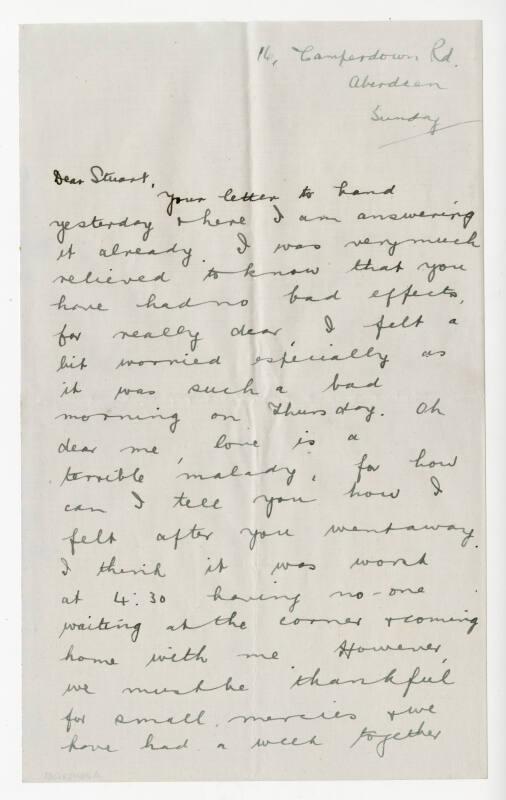 16, Camperdown Rd.
Aberdeen
Sunday
Dear Stuart,
Your letter to hand
yesterday & here I am answering
it already. I was very much
relieved to know that you
have had no bad effects,
for really dear, I felt a
bit worried especially as
it was such a bad
morning on Thursday. Oh
dear me, love is a
terrible malady, for how
can I tell you how I
felt after you went away.
I think it was worst
at 4.30 having no-one
waiting at the corner & coming
home with me. However,
we must be thankful
for small mercies & we
have had a week together